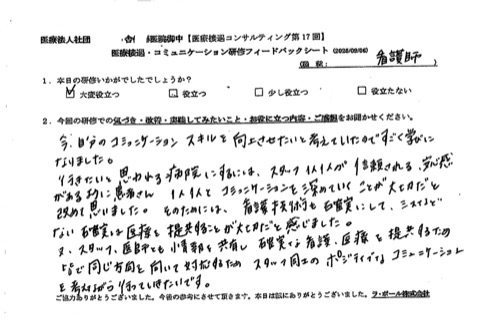 医療法人社団 病院御中【医療接遇コンサルティング第17回】
医療接遇・コミュニケーション研修フィードバックシート (2026/09/06)
(職種: 看護師)
1．本日の研修いかがでしたでしょうか？
☑ 大変役立つ □ 役立つ □ 少し役立つ □ 役立たない
2．今回の研修での気づき・改善・実践してみたいこと・お役に立つ内容・ご感想をお聞かせください。
今、自分のコミュニケーションスキルを向上させたいと考えていたのですごく学びに
なりました。
行きたいと思われる病院にするには、スタッフ1人1人が信頼される、安心感
がある様に患者さん1人1人とコミュニケーションを深めていくことが大切だと
改めて思いました。そのためには、看護技術も確実にして、ミスなど
ない確実な医療を提供することが大切だと感じました。
又、スタッフ、医師とも情報を共有し確実な看護、医療を提供するため
同じ方向を向いて対応するためスタッフ同士のポジティブなコミュニケーション
を考えながら行っていきたいです。
ご協力ありがとうございました。今後の参考にさせて頂きます。本日は誠にありがとうございました。ラ・ポール株式会社